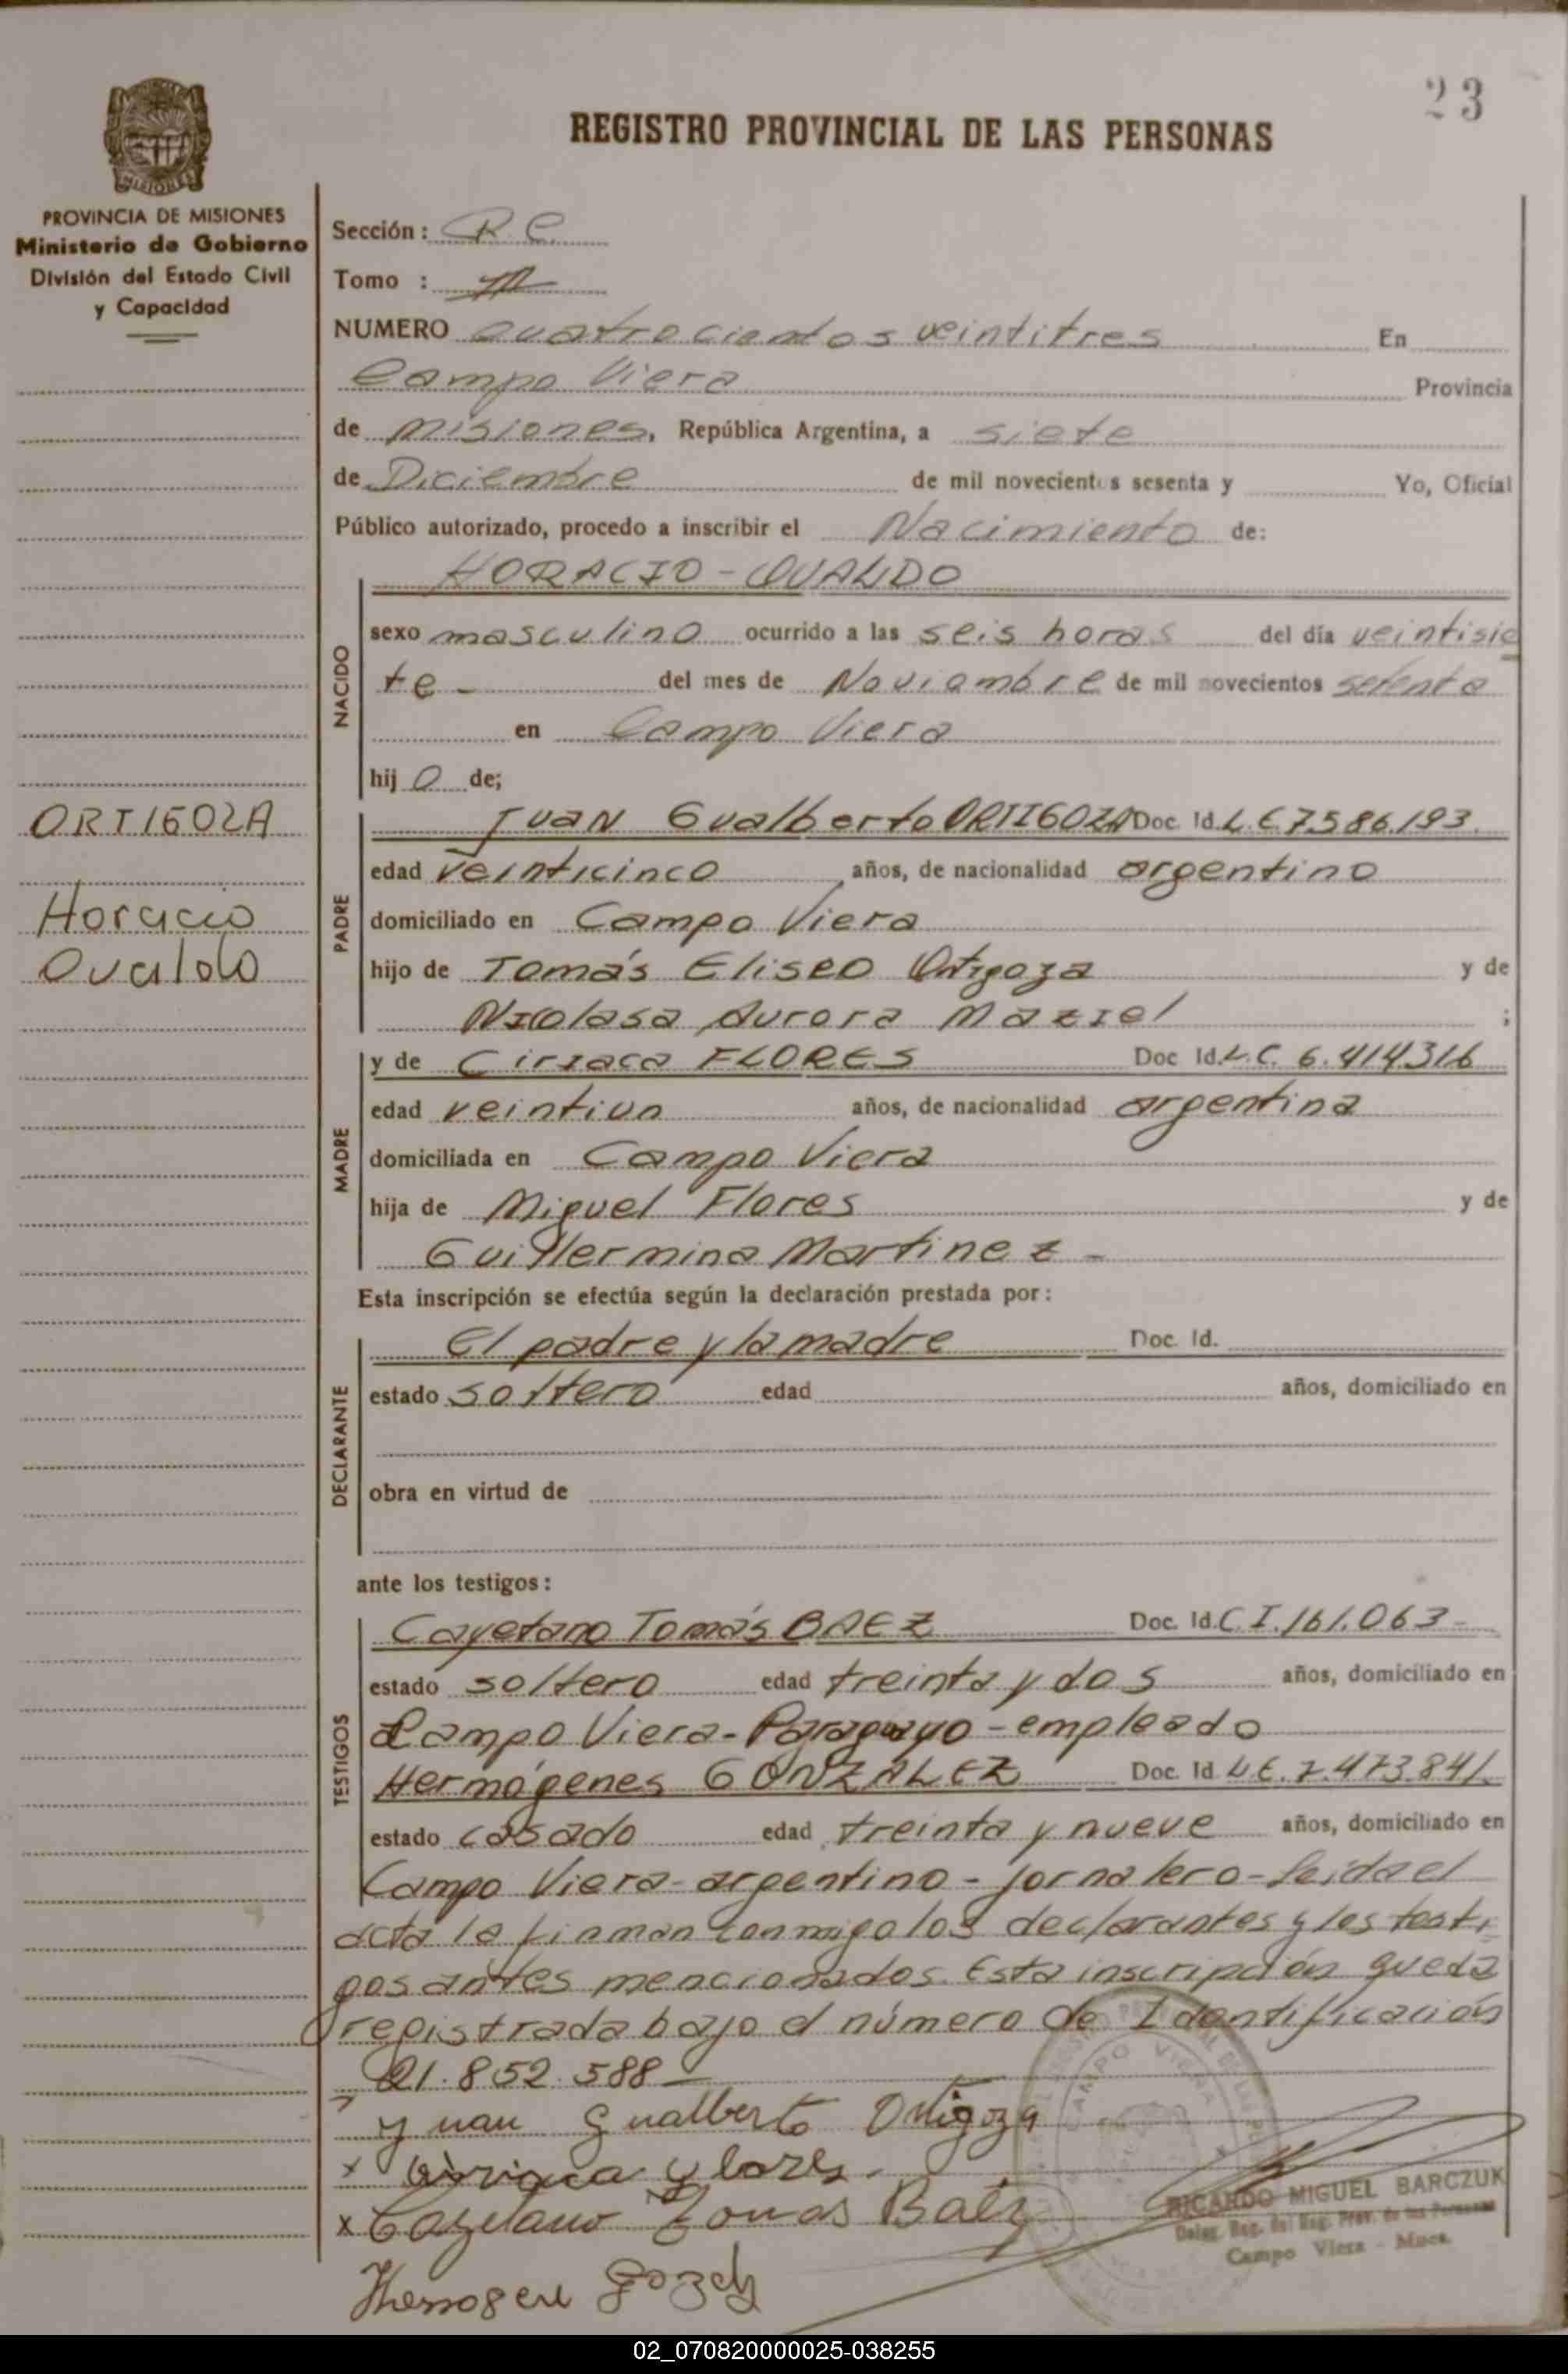 23
REGISTRO PROVINCIAL DE LAS PERSONAS
MISIONES
PROVINCIA DE MISIONES
Ministerio de Gobierno
División del Estado Civil
y Capacidad
ORTIGOZA
Horacio
Ovaldo
Sección: R.C.
Tomo :
NUMERO cuatrocientos veintitres En
Campo Viera Provincia
de Misiones, República Argentina, a siete
de Diciembre de mil novecientos sesenta y Yo, Oficial
Público autorizado, procedo a inscribir el Nacimiento de:
NACIDO
HORACIO - OVALDO
sexo masculino ocurrido a las seis horas del día veintisie
te - del mes de Noviembre de mil novecientos setenta
en Campo Viera
hij o de;
PADRE
Juan Gualberto ORTIGOZA Doc. Id. L.E 7.586.193.
edad veinticinco años, de nacionalidad argentino
domiciliado en Campo Viera
hijo de Tomás Eliseo Ortigoza y de
Nicolasa Aurora Maziel ;
MADRE
y de Ciriaca FLORES Doc Id. L.C. 6.414.316
edad veintiun años, de nacionalidad argentina
domiciliada en Campo Viera
hija de Miguel Flores y de
Guillermina Martinez -
Esta inscripción se efectúa según la declaración prestada por:
DECLARANTE
El padre y la madre Doc. Id.
estado soltero edad años, domiciliado en
obra en virtud de
ante los testigos:
TESTIGOS
Cayetano Tomás BAEZ Doc. Id. C.I. 161.063-
estado soltero edad treinta y dos años, domiciliado en
Campo Viera - Paraguayo - empleado
Hermógenes GONZALEZ Doc. Id L.E. 7.473.841.
estado casado edad treinta y nueve años, domiciliado en
Campo Viera - argentino - jornalero - Leida el
acta la firman conmigo los declarantes y los testi
gos antes mencionados. Esta inscripción queda
registrada bajo el número de Identificación
21.852.588-
Juan Gualberto Ortigoza
x Ciriaca Flores.
x Cayetano Tomas Baéz
RICARDO MIGUEL BARCZUK
Campo Viera - Mnes.
02_070820000025-038255